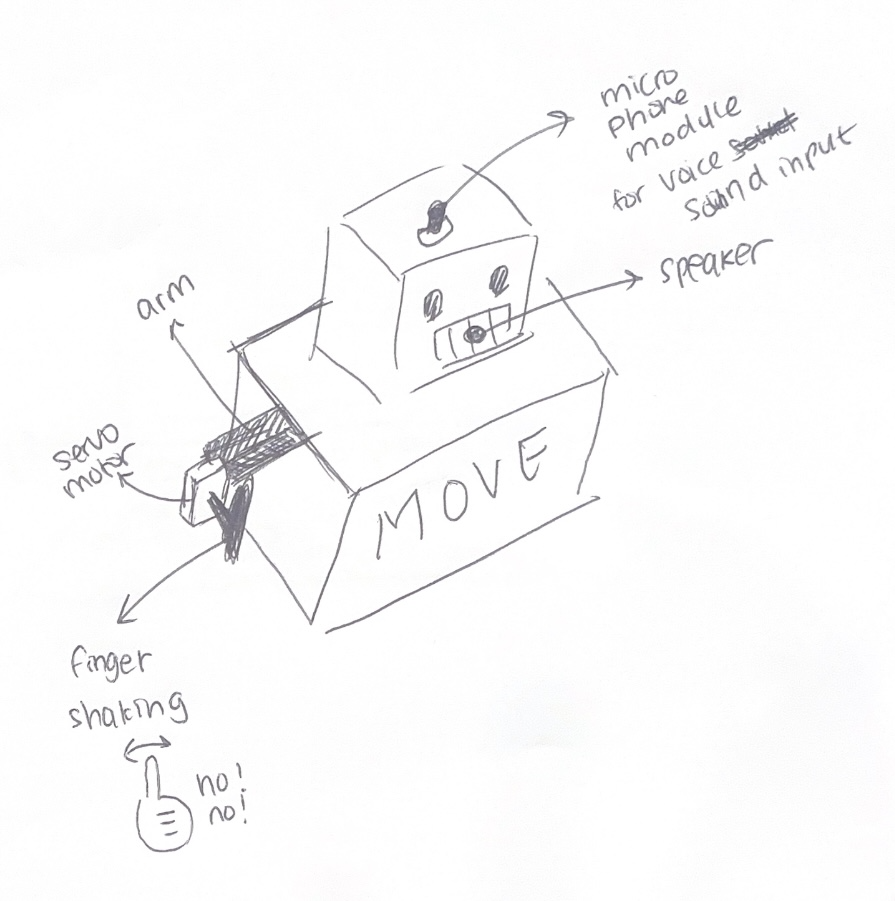 micro
phone
module
for voice
sound input
speaker
arm
servo
motor
MOVE
finger
shaking
no!
no!